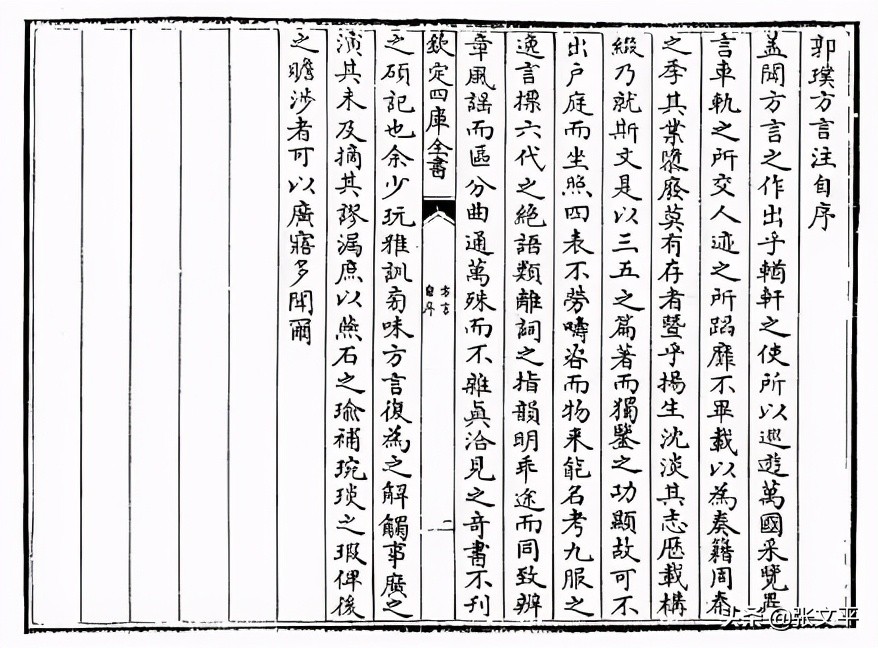 郭璞方言注自序
蓋聞方言之作出乎輶軒之使所以巡遊萬國采覽異
言車軌之所交人迹之所蹈靡不畢載以為奏籍周秦
之季其業隳廢莫有存者暨乎揚生沈淡其志厯載構
綴乃就斯文是以三五之篇著而獨鑒之功顯故可不
出户庭而坐照四表不勞疇咨而物来能名考九服之
逸言摽六代之絶語類離詞之指韻明乖途而同致辨
章風謡而區分曲通萬殊而不雜真洽見之奇書不刊
欽定四庫全書
方言
自序
二
之碩記也余少玩雅訓旁味方言復為之解觸事廣之
演其未及摘其謬漏庶以燕石之瑜補琬琰之瑕俾後
之瞻涉者可以廣寤多聞爾
头条@张文平